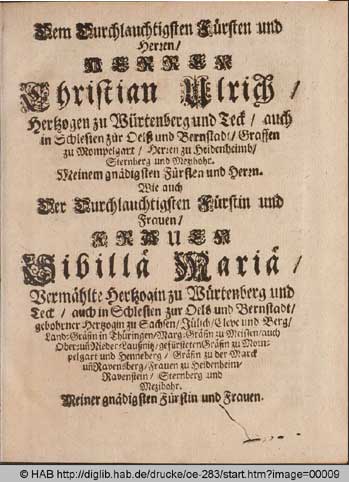 Dem Durchlauchtigsten Fürsten und
Herren/
HERREN
Christian Ulrich/
Hertzogen zu Würtenberg und Teck/ auch
in Schlesien zur Oelß und Bernstadt/ Graffen
zu Mompelgart/ Herren zu Heidenheimb/
Sternberg und Mezibohr.
Meinem gnädigsten Fürsten und Herrn.
Wie auch
Der Durchlauchtigsten Fürstin und
Frauen/
FRAUEN
Sibillä Mariä/
Vermählte Hertzogin zu Würtenberg und
Teck/ auch in Schlesien zur Oels und Bernstadt/
gebohrner Hertzogin zu Sachsen/ Jülich/ Cleve und Berg/
Land-Gräfin in Thüringen/ Marg-Gräfin zu Meissen/ auch
Ober-uñ Nieder-Laußnitz/ gefürsteten Gräfin zu Mom-
pelgart und Henneberg/ Gräfin zu der Marck
uñ Ravensberg/ Frauen zu Heidenheim/
Ravenstein/ Sternberg und
Mezibohr.
Meiner gnädigsten Fürstin und Frauen.
© HAB http://diglib.hab.de/drucke/oe-283/start.htm?image=00009